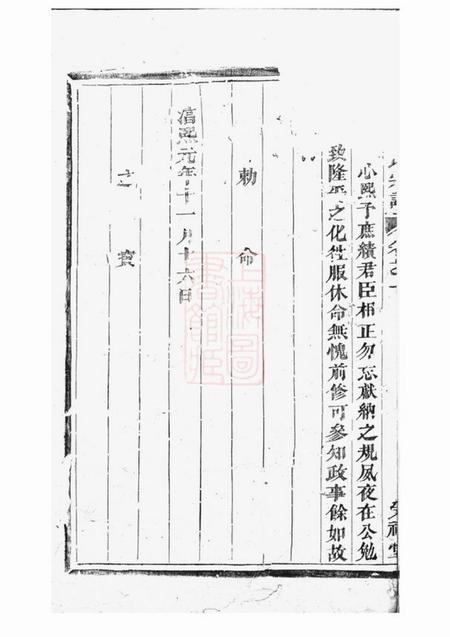 心熙予庶績君臣相正勿忘獻納之規夙夜在公勉
致隆平之化往服休命無愧前修可參知政事餘如故
勅命
淳熙元年十一月十六日
之寶
上海圖書館藏